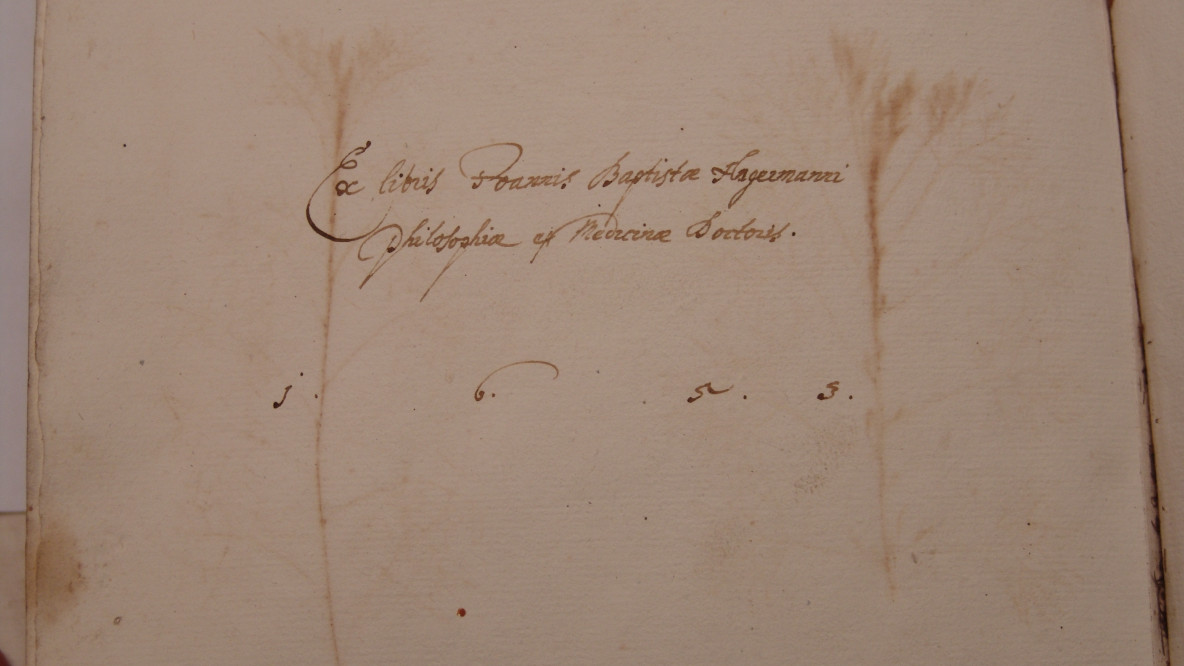 Ex libris Joannis Baptistæ Hagermanni
Philosophiæ et Medicinæ Doctoris.
1. 6. 5. 3.